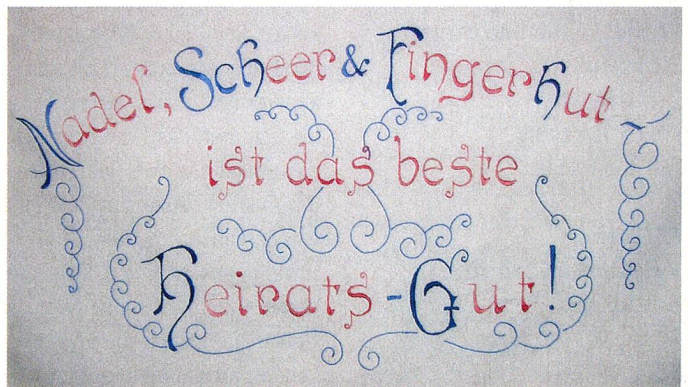 Nadel, Scheer & Fingerhut
ist das beste
Heirats-Gut!